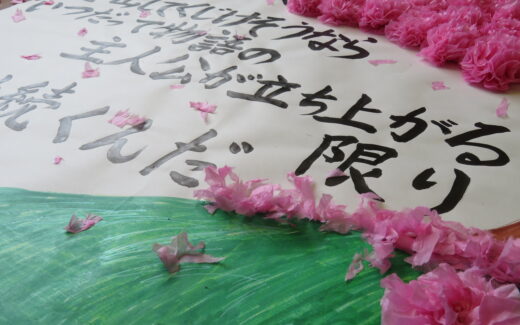 してくじけそうなら
いつだって物語の
主人公が立ち上がる
限り
続くんだ